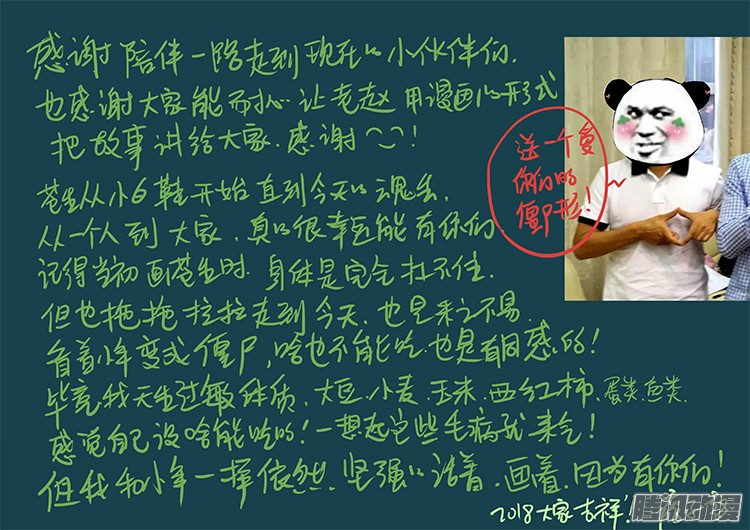 感谢陪伴一路走到现在的小伙伴们.
也感谢大家能耐心让老赵用漫画的形式
把故事讲给大家.感谢!
送一个爱
你们的
僵尸形!
苍生从小6鞋开始直到今天的魂丢,
从一个人到大家,真的很幸运能有你们
记得当初画苍生时.身体是完全扛不住.
但也拖拖拉拉走到今天.也是来之不易.
看着小年变成僵尸,啥也不能吃.也是有同感的!
毕竟我天生过敏体质,大豆.小麦.玉米.西红柿.蛋类.鱼类.
感觉自己没啥能吃的!一想起这些毛病就来气!
但我和小年一样依然.坚强的活着.画着.因为有你们!
2018大家吉祥!
腾讯动漫